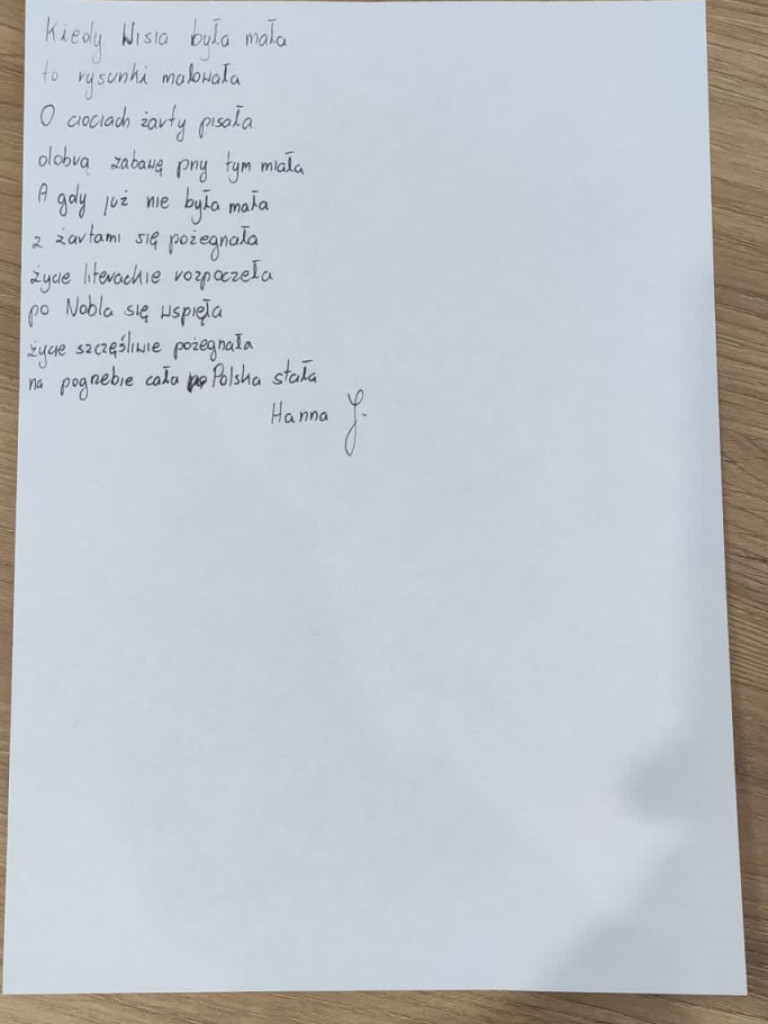 Kiedy Wisia była mała
to rysunki malowała
O ciociach żarty pisała
dobrą zabawę przy tym miała
A gdy już nie była mała
z żartami się pożegnała
życie literackie rozpoczeła
po Nobla się wspięła
życie szczęśliwie pożegnała
na pogrzebie cała Polska stała
Hanna J.